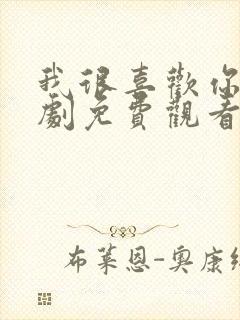 我很喜歡你
劇免費觀看
布萊恩-奧康